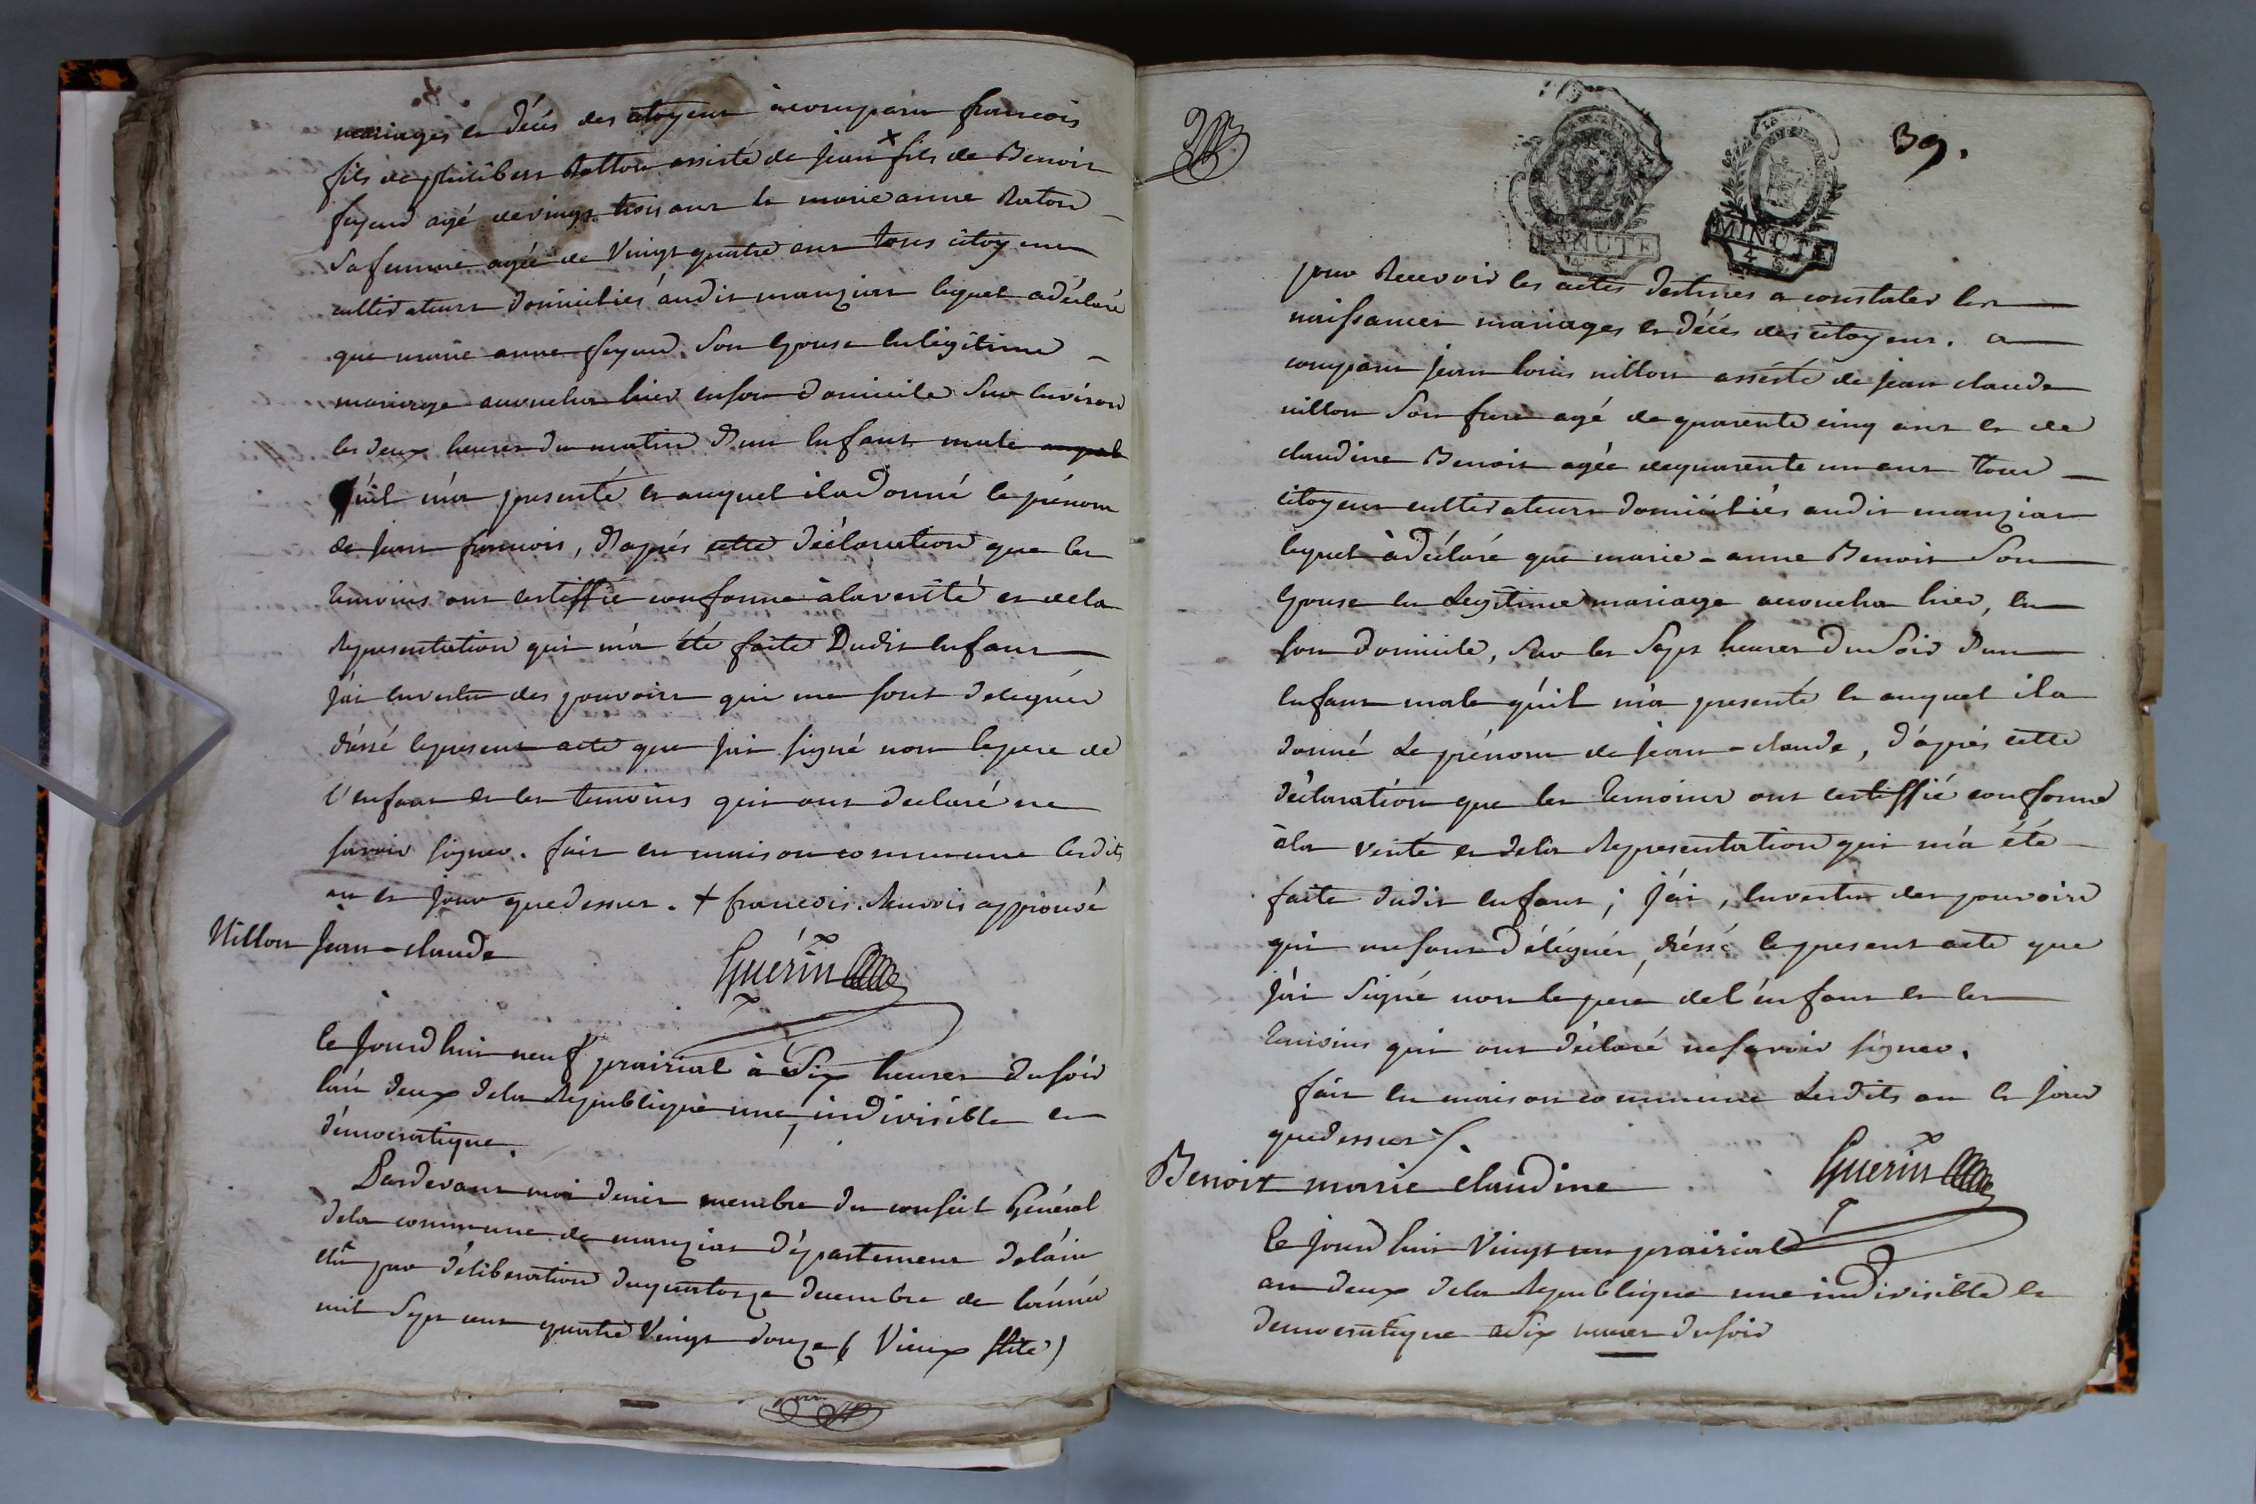 mariages et décés des citoyens à comparu francois
fils de philibert Ratton assisté de jean + fils de Benoit
feyeud agé de vingt trois ans et marie anne Raton
Sa femme agée de Vingt quatre ans tous citoyens
cultivateurs domiciliés audit manziat lequel a déclaré
que marie anne feyeud Son Epouse en légitime
mariage accoucha hier en son domicile Sur environ
les deux heures du matin d'un Enfant male auquel
qu'il m'a presenté et auquel il a donné le prénom
de jean francois, d'aprés cette déclaration que les
temoins ont certiffié conforme à la verité et de la
Representation qui m'a été faite Dudit Enfant
j'ai en vertu des pouvoirs qui me sont delegués
dréssé le present acte que j'ai signé non le pere de
l'enfant et les temoins qui ont declaré ne
savoir signer. fait en maison commune lesdits
an et jour que dessus. + francois. Renvois approuvé
Nillon jean-claude
Guérin
Ce jourd'hui neuf prairial à Six heures du soir
l'an deux de la Republique une, indivisible et
démocratique.
Pardevant moi denis membre du conseil Général
de la commune de manziat département de l'ain
élu par déliberation du quatorze decembre de l'année
mil Sept cent quatre Vingt douze (Vieux stile)
39.
MINUTE
MINUTE
4 S
pour Recevoir les actes destinés a constater les
naissances mariages et décés des citoyens. a
comparu jean louis nillon assisté de jean claude
nillon Son frere agé de quarente cinq ans et de
claudine Benoit agée de quarente un ans tous
citoyens cultivateurs domiciliés audit manziat
lequel à déclaré que marie-anne Benoit Son
Epouse en Legitime mariage accoucha hier, en
son domicile, Sur les Sept heures du Soir d'un
Enfant male qu'il m'a presenté et auquel il a
donné Le prénom de jean-claude, d'aprés cette
déclaration que les temoins ont certiffié conforme
à la verité et de la Representation qui m'a été
faite dudit enfant; j'ai, en vertu des pouvoirs
qui me sont délégués, dréssé le present acte que
j'ai Signé non le pere de l'énfant et les
temoins qui ont déclaré ne savoir signer.
fait en maison commune Lesdits an et jour
que dessus
Benoit marie claudine
Guerin
Ce jourd'hui Vingt un prairial
an deux de la Republique une indivisible et
democratique a dix heures du soir